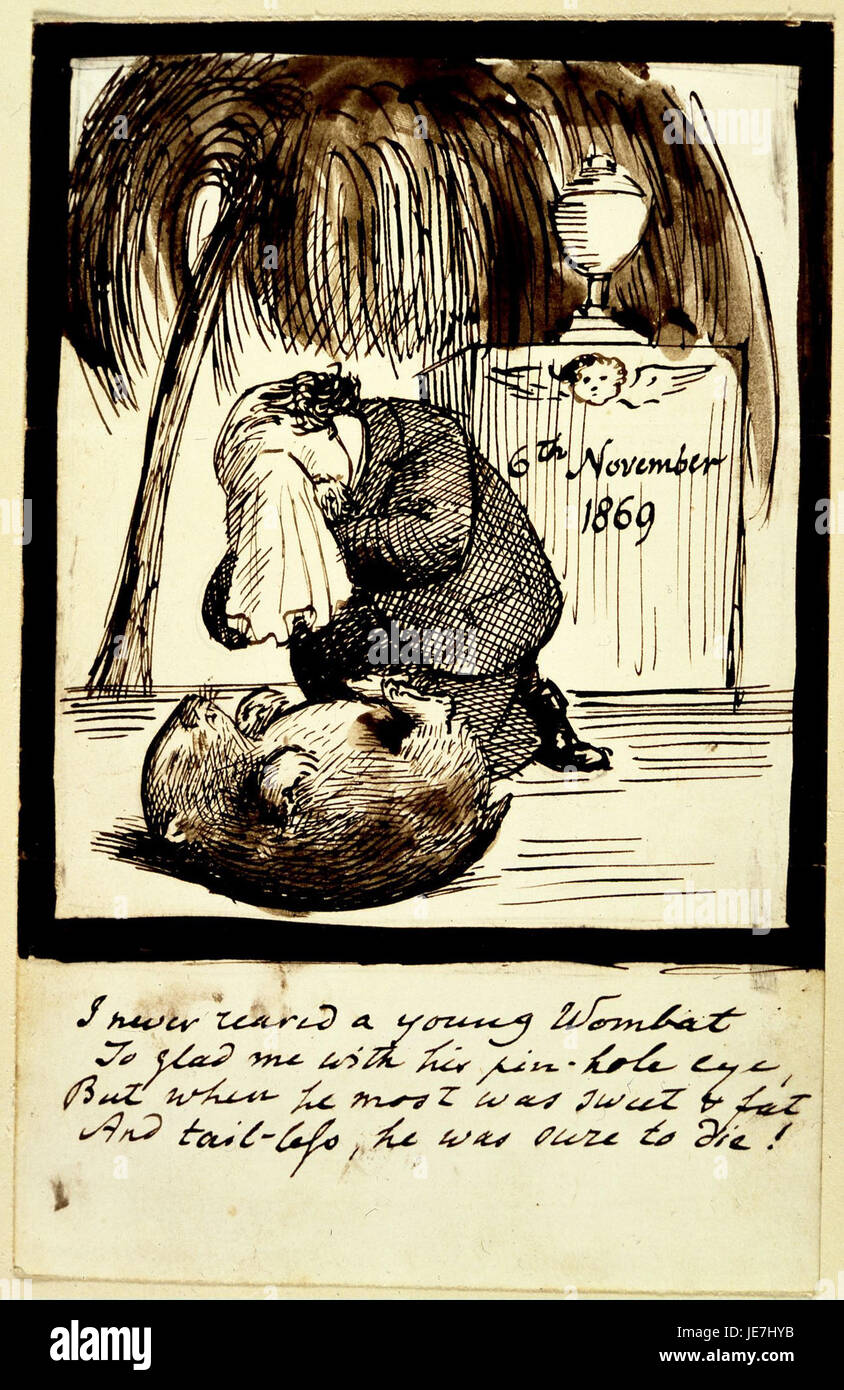 6th November
1869
I never reared a young Wombat
To glad me with his pin-hole eye,
But when he most was sweet & fat
And tail-less, he was sure to die!
alamy
Image ID: JE7HYB
www.alamy.com